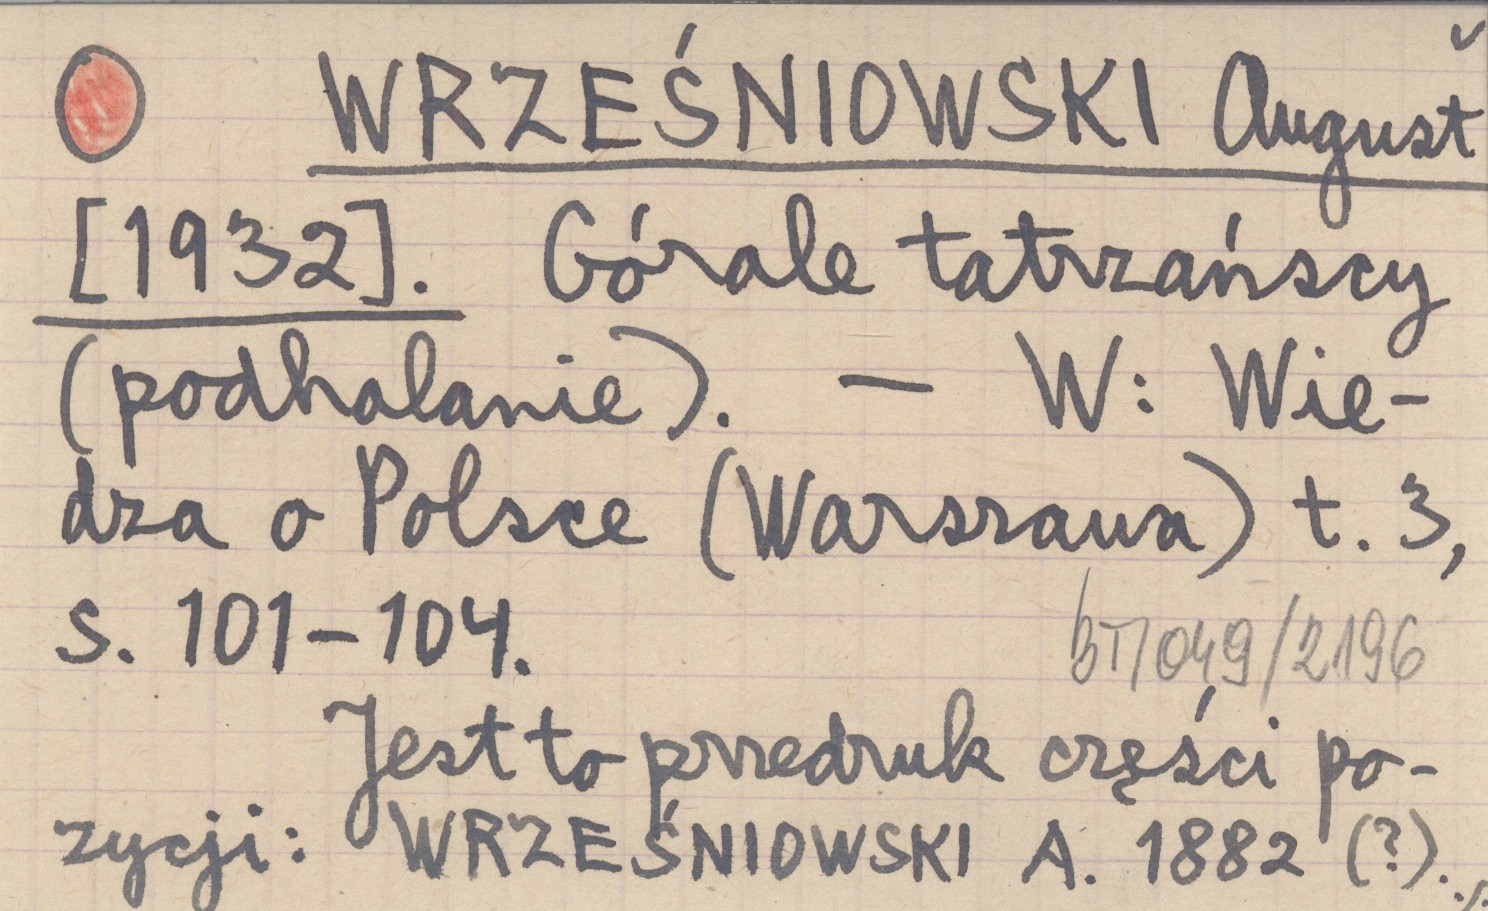 WRZEŚNIOWSKI August
[1932]. Górale tatrzańscy
(podhalanie). — W: Wie-
dza o Polsce (Warszawa) t. 3,
s. 101-104.
BT/049/2196
Jest to przedruk części po-
zycji: WRZEŚNIOWSKI A. 1882 (?).
./.